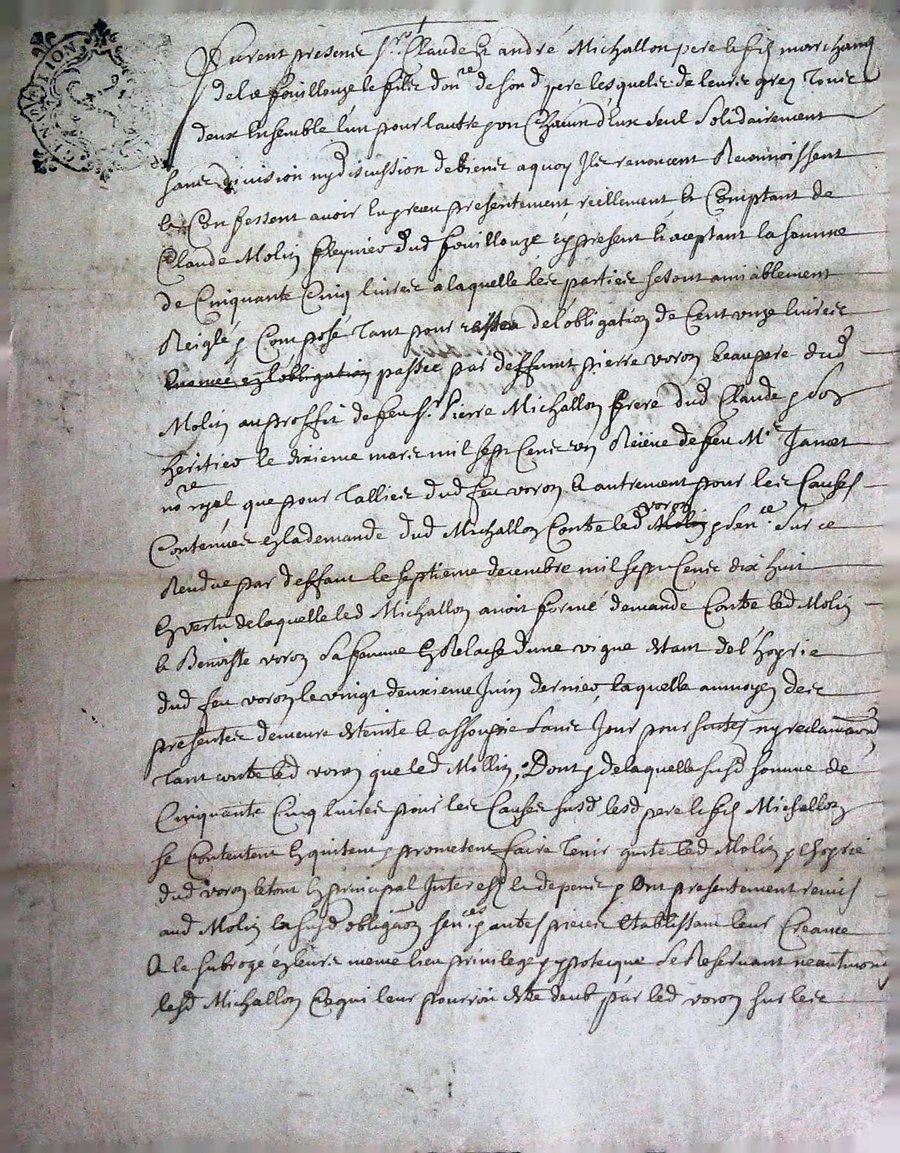 Furent presens Sr. Claude & andré Michallon pere & fils marchand
de la fouillouze le fils don re de sond pere lesquels de leurs grez Tous
deux Ensemble lun pour lautre Chacun deux seul Solidairement
sans division ny discussion de biens a quoy Ils renoncent Reconnoissent
& Confessent avoir eu & receu presentement reellement & Comptant de
Claude Molin dud fouillouze cy present & aceptant la somme
de Cinquante Cinq livres a laquelle les parties se sont amiablement
Reiglé & Composé Tant pour reste de lobligation de Cent unze livres
passée par deffunt pierre voron beaupere dud
Molin au proffit de feu Sr. Pierre Michallon frere dud Claude & son
heritier le dixieme mars mil sept Cens un Reçeue de feu Me Janot
no re royal que pour Tailles dud feu voron & autrement pour les Causes
Contenues en la demande dud Michallon Contre led voron & sen ce. Sur ce
Rendue par deffaut le septieme decembre mil sept Cens dix huit
En vertu de laquelle led Michallon avoit formé demande Contre led Molin
& Benoiste voron sa femme En Relache dune vigne etant de l'hoprie
dud feu voron le vingt deuxieme Juin dernier, laquelle au moyen des
presentes demeure eteinte & assoupie sans Jour poursuites ny reclamaon
Tant contre led voron que led Mollin, Dont & de laquelle susd somme de
Cinquante Cinq livres pour les Causes susd lesd pere & fils Michallon
se Contentent En quitent & prometent faire Tenir quite led Molin & lhoprie
dud voron le tout En principal Interest & depens & Ont presentement remis
aud Molin la susd obligaon sences & autres pieces etablissant leur Creance
& la subrogé en leurs meme lieu privilege & ypoteque Se Reservant neantmoins
lesd Michallon Ce qui leur pourroit etre deub par led voron sur les